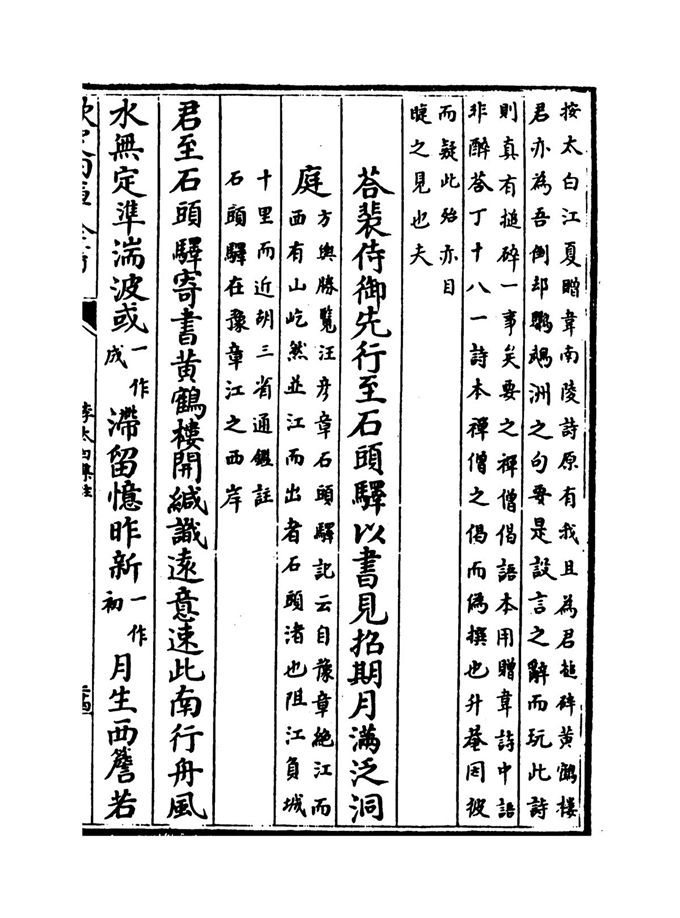 按太白江夏贈韋南陵詩原有我且為君搥碎黄鶴樓
君亦為吾倒却鸚鵡洲之句要是設言之辭而玩此詩
則真有搥碎一事矣要之禪僧偈語本用贈韋詩中語
非醉答丁十八一詩本禪僧之偈而偽撰也升菴因彼
而疑此殆亦目
睫之見也夫
荅裴侍御先行至石頭驛以書見招期月滿泛洞
庭
方輿勝覽汪彦章石頭驛記云自豫章絶江而
西有山屹然並江而出者石頭渚也阻江負城
十里而近胡三省通鑑註
石頭驛在豫章江之西岸
君至石頭驛寄書黄鶴樓開緘識逺意速此南行舟風
水無定準湍波或一作成滯留憶昨新一作初月生西簷若
李太白集注